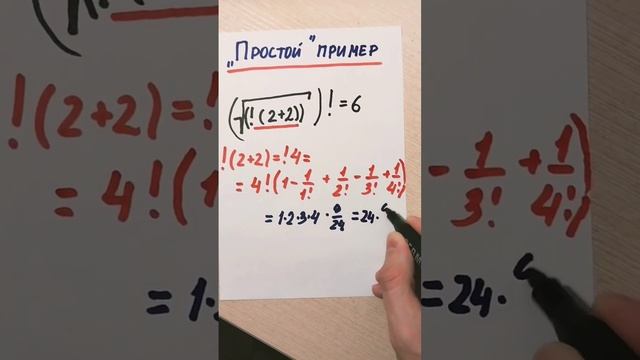 „Простой" пример
(√(!(2+2)))! = 6
!(2+2)=!4=
= 4!(1 - 1/1! + 1/2! - 1/3! + 1/4!)
= 1·2·3·4 · 9/24 = 24 ·